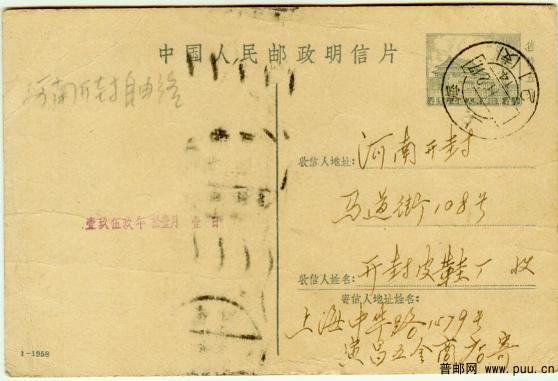 中国人民邮政明信片
河南开封自由路
收信人地址:
河南开封
马道街108号
壹玖伍玖年 拾壹月 壹日
收信人姓名:
开封皮鞋厂 收
寄信人地址姓名:
上海中华路1579号
寅昌五金商店寄
1-1958
普邮网 www.puu.cn